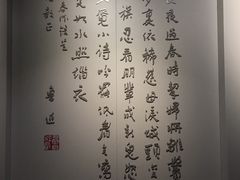 夜過春時挈婦將雛鬢
裏依稀慈母淚城頭
旗忍看朋輩成新鬼怒
覓小詩吟罷低眉無寫
如水照緇衣
教正
魯迅